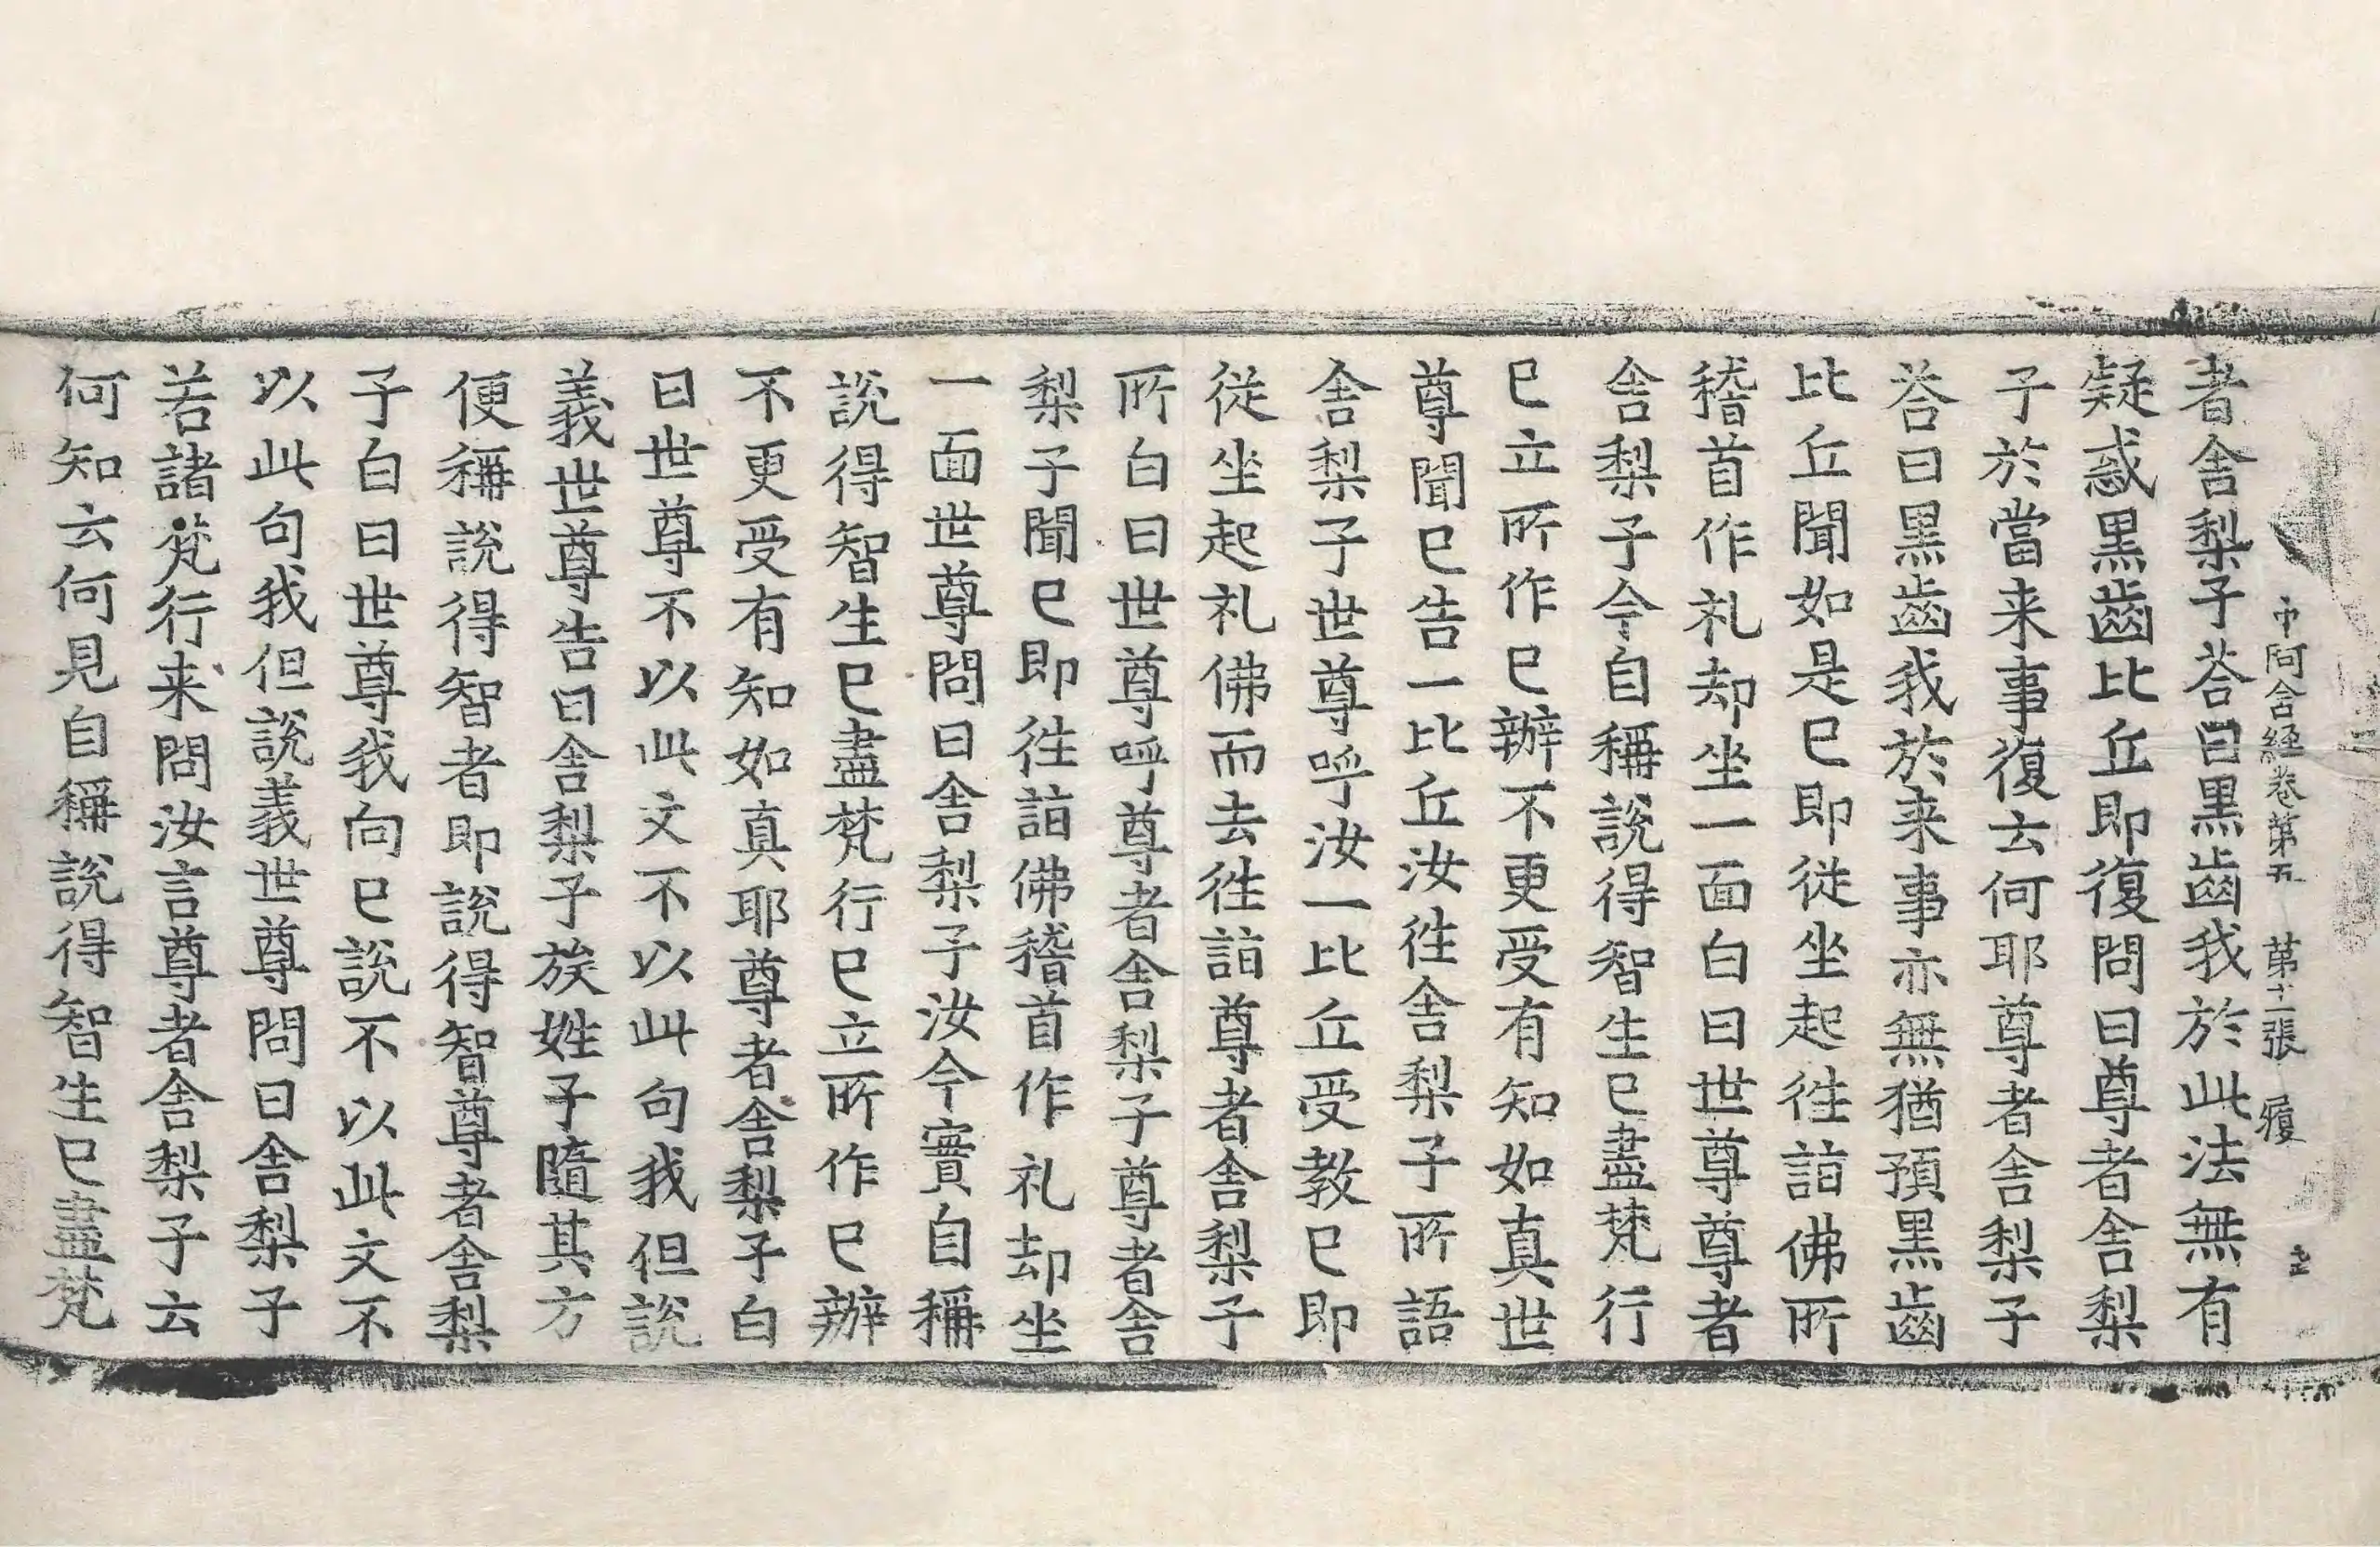 中阿含経卷第五　第十二張　履
者舍梨子荅曰黒齒我於此法無有
疑惑黒齒比丘即復問曰尊者舍梨
子於當来事復云何耶尊者舍梨子
荅曰黒齒我於来事亦無猶預黒齒
比丘聞如是已即從坐起往詣佛所
稽首作礼却坐一面白曰世尊尊者
舍梨子今自稱說得智生已盡梵行
已立所作已辦不更受有知如真世
尊聞已告一比丘汝往舍梨子所語
舍梨子世尊呼汝一比丘受教已即
從坐起礼佛而去往詣尊者舍梨子
所白曰世尊呼尊者舍梨子尊者舍
梨子聞已即往詣佛稽首作礼却坐
一面世尊問曰舍梨子汝今實自稱
說得智生已盡梵行已立所作已辦
不更受有知如真耶尊者舍梨子白
曰世尊不以此文不以此句我但說
義世尊告曰舍梨子族姓子隨其方
便稱說得智者即說得智尊者舍梨
子白曰世尊我向已說不以此文不
以此句我但說義世尊問曰舍梨子
若諸梵行来問汝言尊者舍梨子云
何知云何見自稱說得智生已盡梵